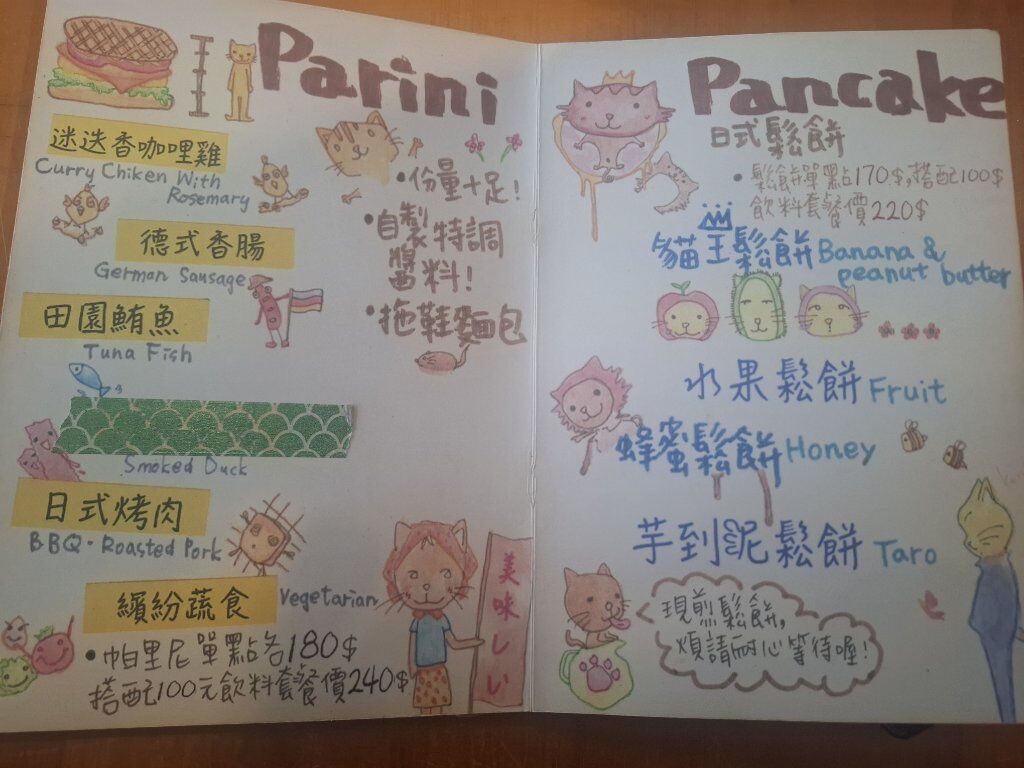 Parini
迷迭香咖哩雞
Curry Chiken With
Rosemary
德式香腸
German Sausage
田園鮪魚
Tuna Fish
Smoked Duck
日式烤肉
BBQ・Roasted Pork
繽紛蔬食
Vegetarian
•帕里尼單點各180$
搭配100元飲料套餐價240$
•份量十足!
•自製特調
醬料!
•拖鞋麵包
美味しい
Pancake
日式鬆餅
•鬆餅單點170$,搭配100$
飲料套餐價220$
貓王鬆餅 Banana &
peanut butter
水果鬆餅 Fruit
蜂蜜鬆餅 Honey
芋到泥鬆餅 Taro
現煎鬆餅,
煩請耐心等待喔!